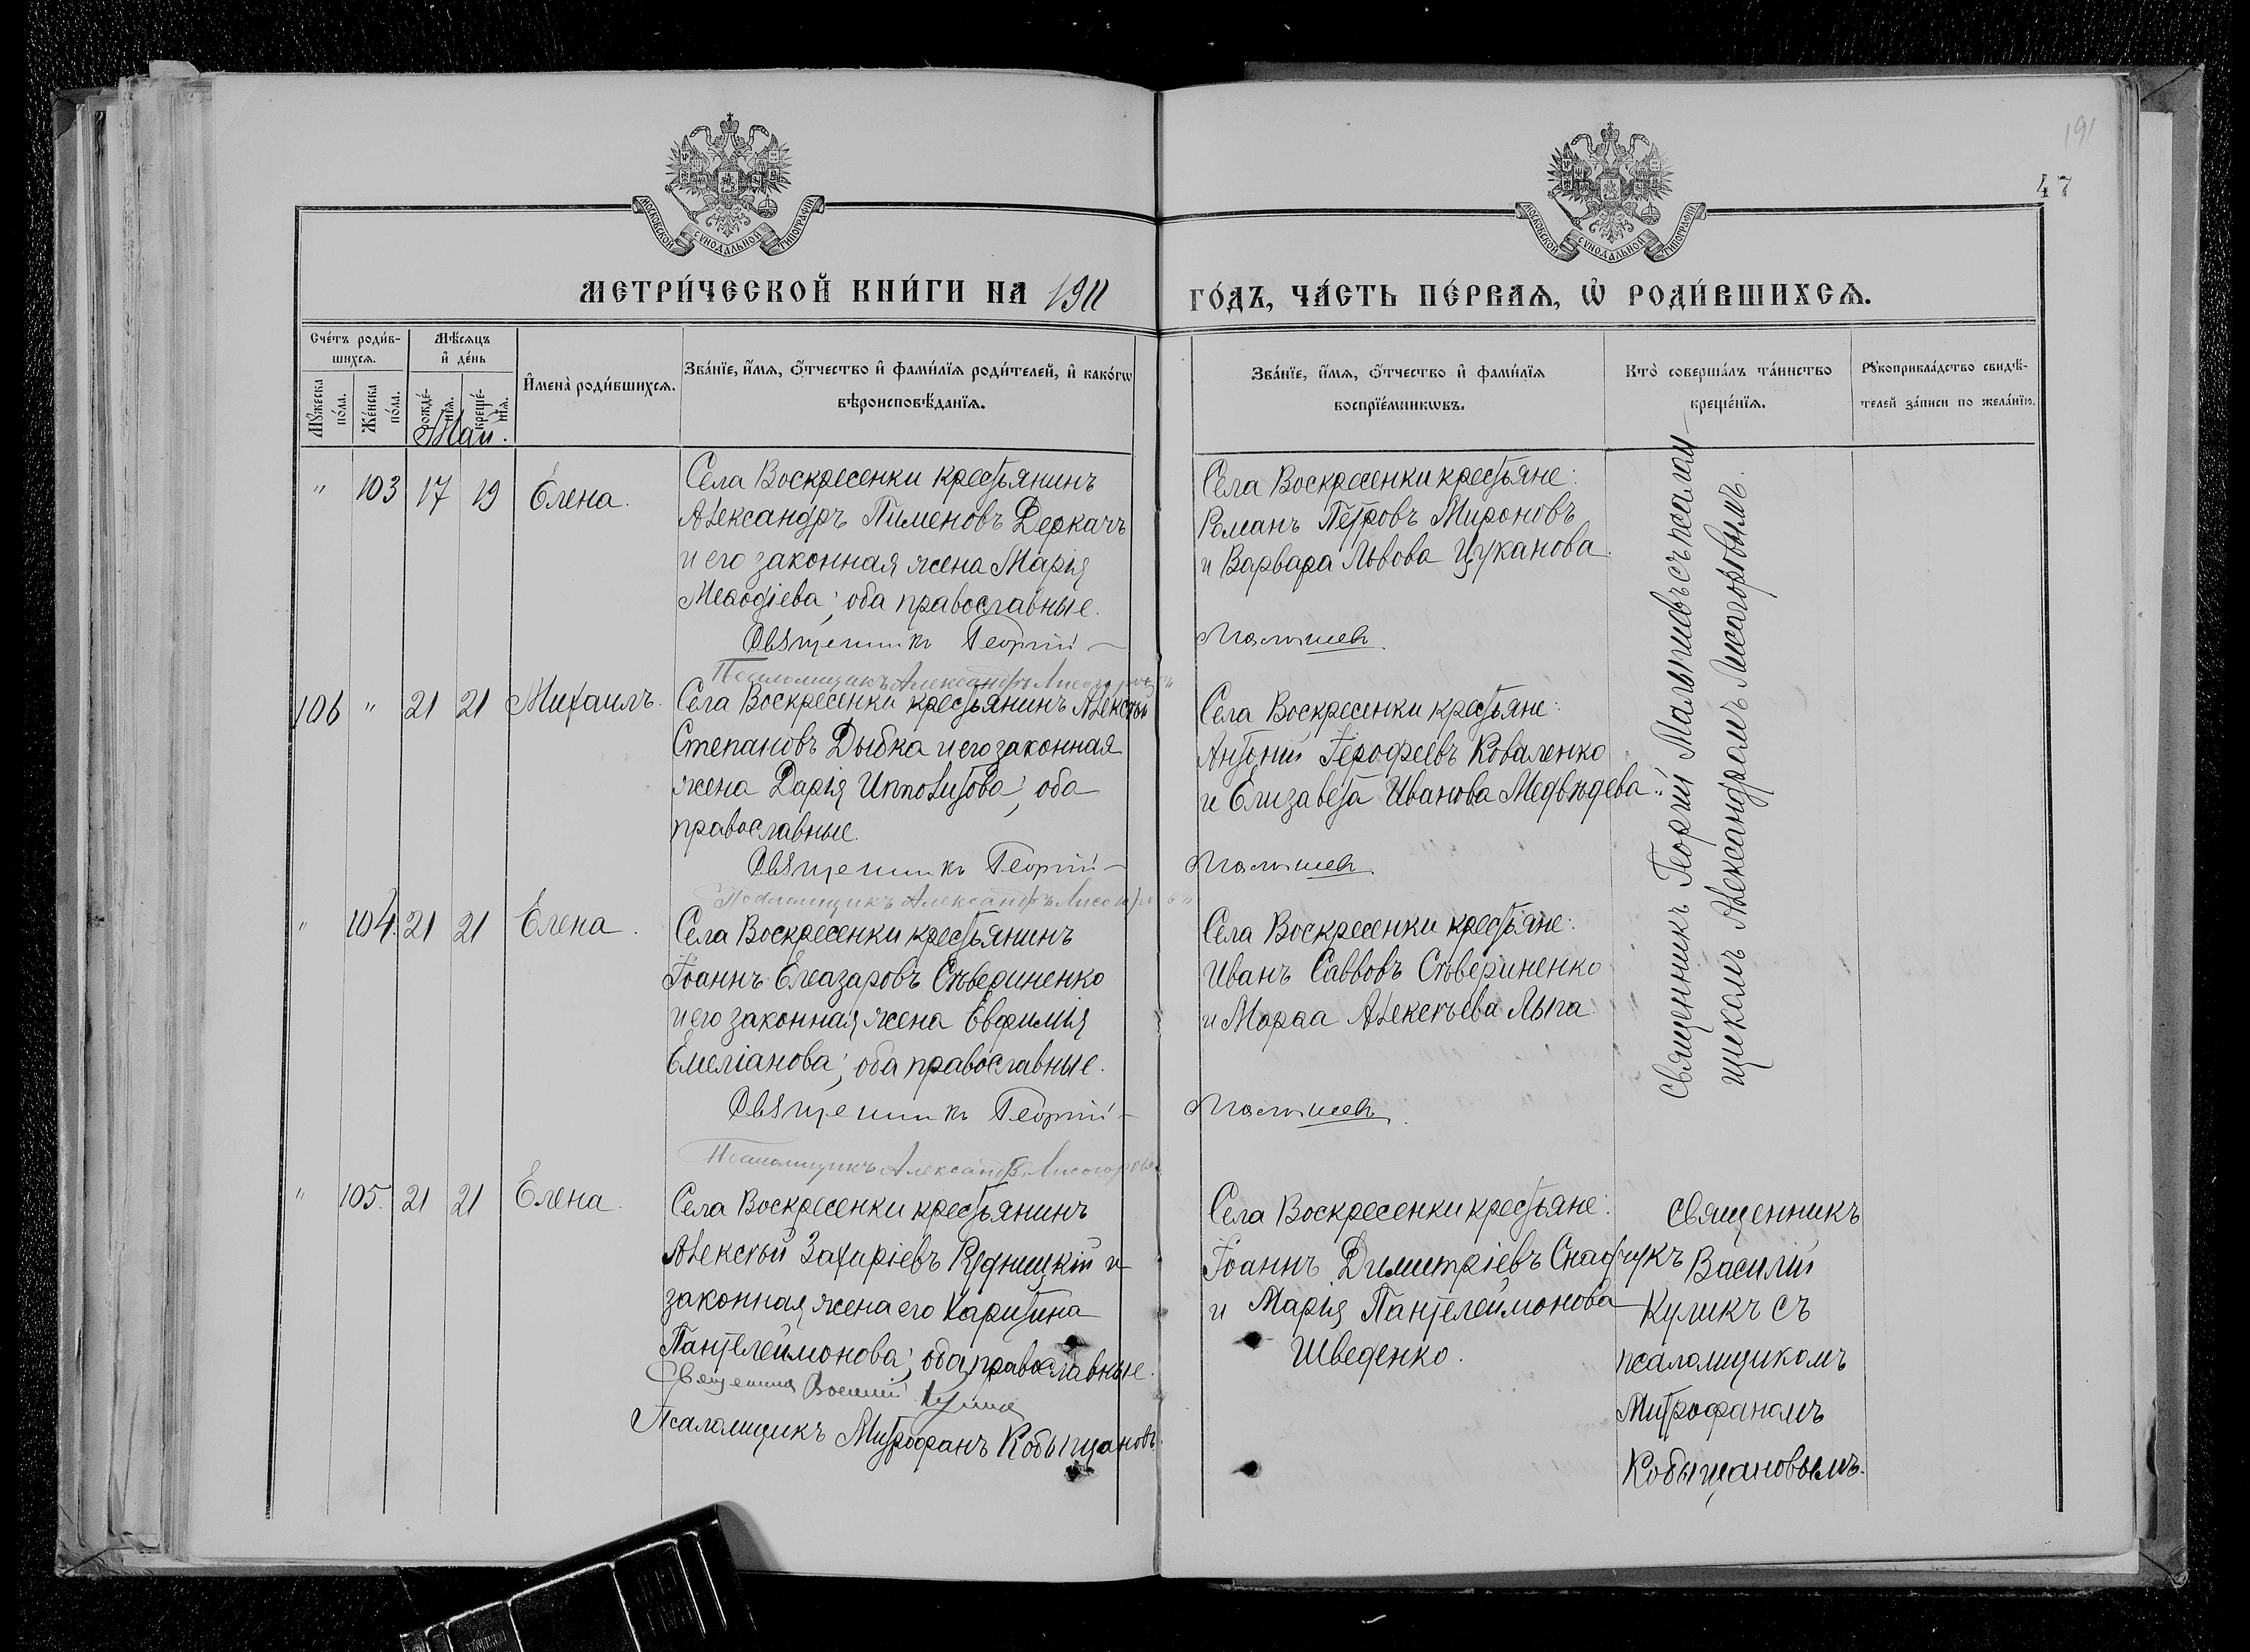 191
47
МОСКОВСКОЙ СѴНОДАЛЬНОЙ ТИПОГРАФІИ
МОСКОВСКОЙ СѴНОДАЛЬНОЙ ТИПОГРАФІИ
МЕТРИ́ЧЕСКОЙ КНИ́ГИ НА 1911 ГО́ДЪ, ЧА́СТЬ ПЕ́РВАѦ, Ѡ҆ РОДИ́ВШИХСѦ.
Сче́тъ роди́в-
шихсѧ.
Мꙋ́жеска по́ла.
Же́нска по́ла.
Мѣ́сѧцъ
и҆ де́нь
рожде́-
нїѧ.
креще́-
нїѧ.
И҆мена̀ роди́вшихсѧ.
Зва́нїе, и҆́мѧ, ѻ҆́тчество и҆ фами́лїѧ роди́телей, и҆ како́гѡ
вѣроисповѣ́данїѧ.
Зва́нїе, и҆́мѧ, ѻ҆́тчество и҆ фами́лїѧ
воспрїе́мникѡвъ.
Кто̀ соверша́лъ та́инство
креще́нїѧ.
Рꙋкоприкла́дство свидѣ́-
телей за́писи по жела́нїю.
Май.
" 103 17 19 Елена.
Села Воскресенки крестьянинъ
Александръ Пименовъ Деркачъ
и его законная жена Марія
Меѳодіева; оба православные.
Священникъ Георгій
Малышевъ
Псаломщикъ Александръ Лисогоровъ
Села Воскресенки крестьяне:
Романъ Петровъ Мироновъ
и Варвара Львова Цуканова.
106 " 21 21 Михаилъ.
Села Воскресенки крестьянинъ Алексѣй
Степановъ Дыбка и его законная
жена Дарія Ипполитова; оба
православные.
Священникъ Георгій
Малышевъ
Псаломщикъ Александръ Лисогоровъ
Села Воскресенки крестьяне:
Антоній Іерофеевъ Коваленко
и Елизавета Иванова Медвѣдева.
" 104. 21 21 Елена.
Села Воскресенки крестьянинъ
Іоаннъ Елеазаровъ Сѣвериненко
и его законная жена Евфимія
Емеліанова; оба православные.
Священникъ Георгій
Малышевъ
Псаломщикъ Александръ Лисогоровъ
Села Воскресенки крестьяне:
Иванъ Саввовъ Сѣвериненко
и Марѳа Алексѣева Лыга.
Священникъ Георгій Малышевъ съ псалом-
щикомъ Александромъ Лисогоровымъ.
" 105. 21 21 Елена.
Села Воскресенки крестьянинъ
Алексѣй Захаріевъ Рудницкій и
законная жена его Харитина
Пантелеимонова; оба православные.
Священникъ Василій Куликъ
Псаломщикъ Митрофанъ Кобыщановъ.
Села Воскресенки крестьяне:
Іоаннъ Димитріевъ
и Марія Пантелеимонова
Шведенко.
Священникъ
Василій
Куликъ съ
псаломщикомъ
Митрофаномъ
Кобыщановымъ.